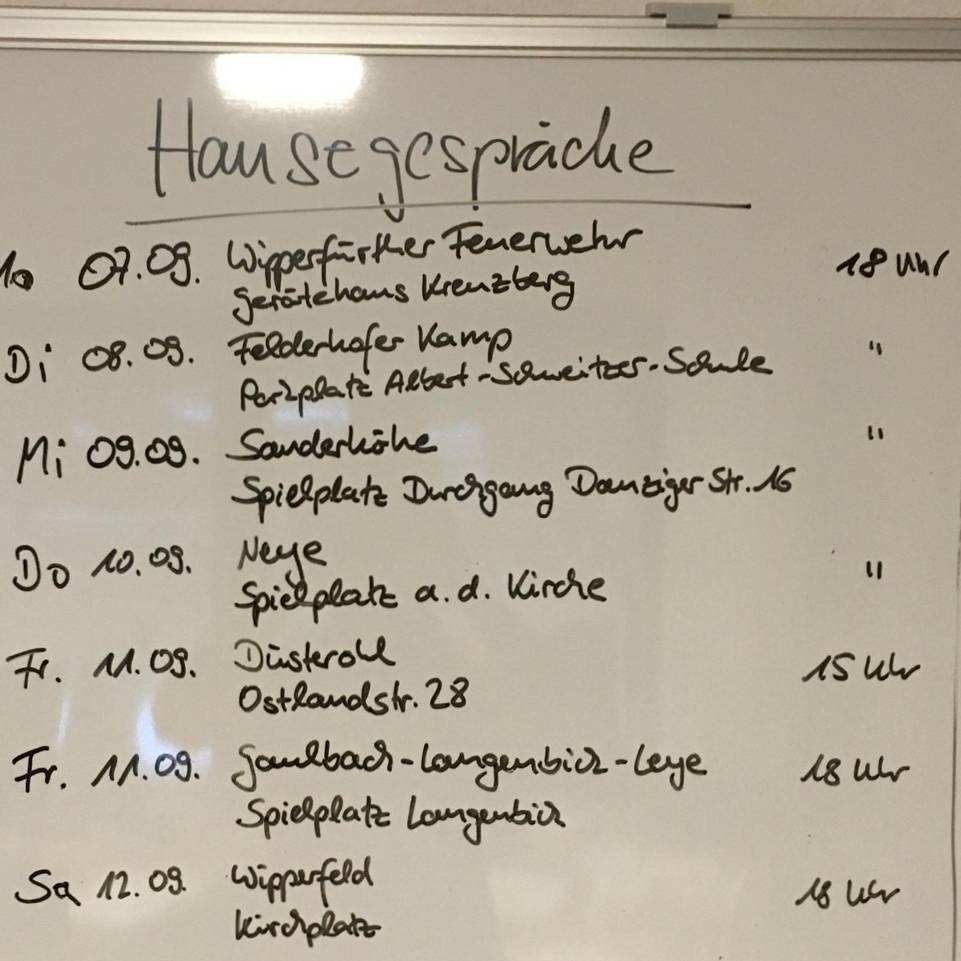 Hansegespräche
Mo 07.09. Wipperfürther Feuerwehr 18 Uhr
gerätehaus Kreuzberg
Di 08.09. Felderhofer Kamp "
Parkplatz Albert-Schweitzer-Schule
Mi 09.09. Sanderhöhe "
Spielplatz Durchgang Danziger Str. 16
Do 10.09. Neye "
Spielplatz a. d. Kirche
Fr. 11.09. Düsterohl 15 Uhr
Ostlandstr. 28
Fr. 11.09. Gaulbach-Langenbick-Leye 18 Uhr
Spielplatz Langenbick
Sa 12.09. Wipperfeld 18 Uhr
Kirchplatz